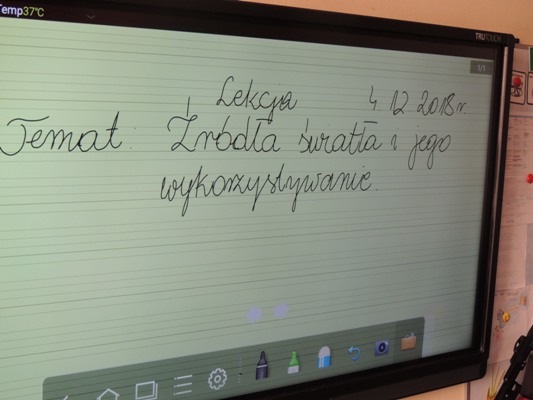 Temp37°C
TRUTOUCH
1/1
Lekcja 4 12 2018 r.
Temat: Źródła światła i jego
wykorzystywanie.